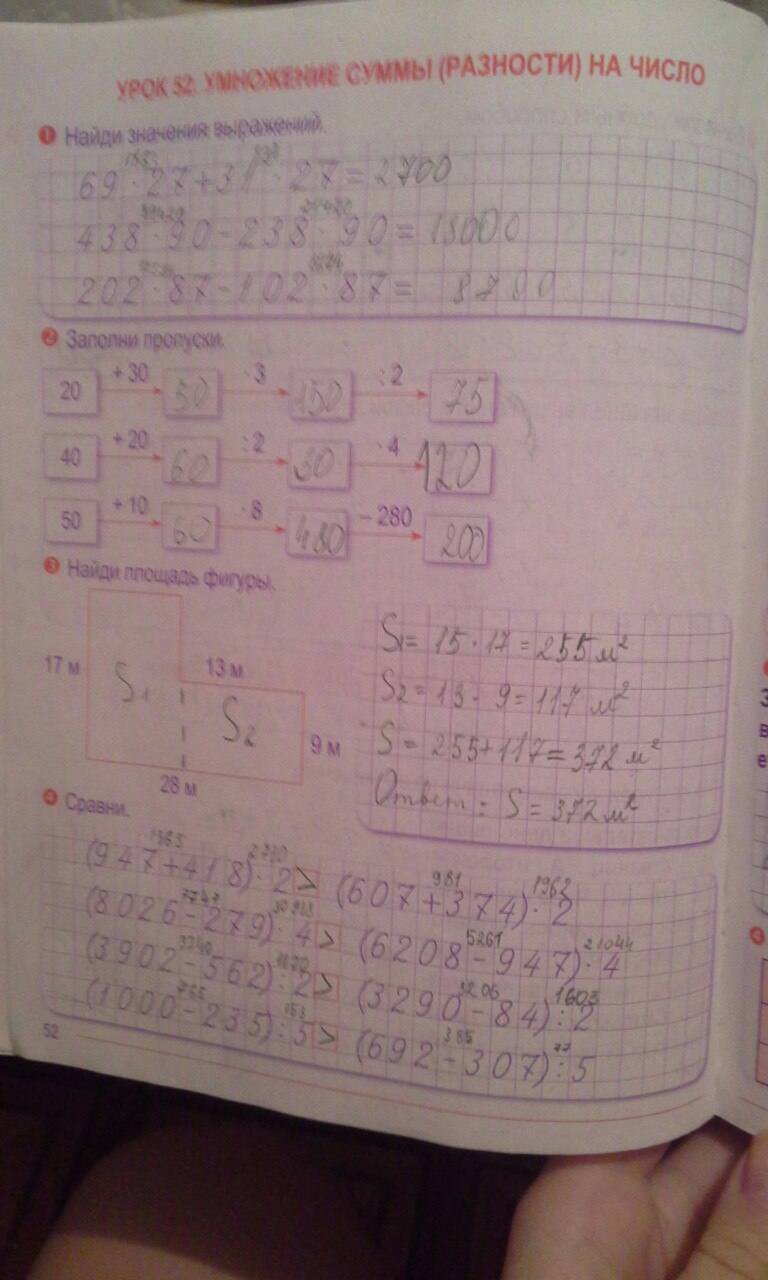 УРОК 52. УМНОЖЕНИЕ СУММЫ (РАЗНОСТИ) НА ЧИСЛО
1 Найди значения выражений.
69 · 27 + 31 · 27 = 2700
438 · 90 - 238 · 90 = 18000
202 · 87 - 102 · 87 = 8700
2 Заполни пропуски.
20 +30 50 · 3 150 : 2 75
40 +20 60 : 2 30 · 4 120
50 +10 60 · 8 480 - 280 200
3 Найди площадь фигуры.
17 м 13 м 9 м 28 м
S1 S2
S1 = 15 · 17 = 255 м²
S2 = 13 · 9 = 117 м²
S = 255 + 117 = 372 м²
Ответ: S = 372 м²
4 Сравни.
1365 2730 981 1962
(947 + 418) · 2 > (607 + 374) · 2
7747 5261 21044
(8026 - 279) · 4 > (6208 - 947) · 4
3340 1670 3206 1603
(3902 - 562) : 2 > (3290 - 84) : 2
765 153 385 77
(1000 - 235) : 5 > (692 - 307) : 5
52